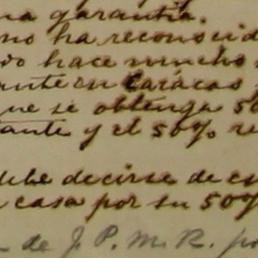 na garantía.
no ha reconocid
do hace mucho
ante en Caracas
ue se obtenga 50
tante y el 50% re
debe decirse de es
casa por su 50%
de J. P. M. R. po